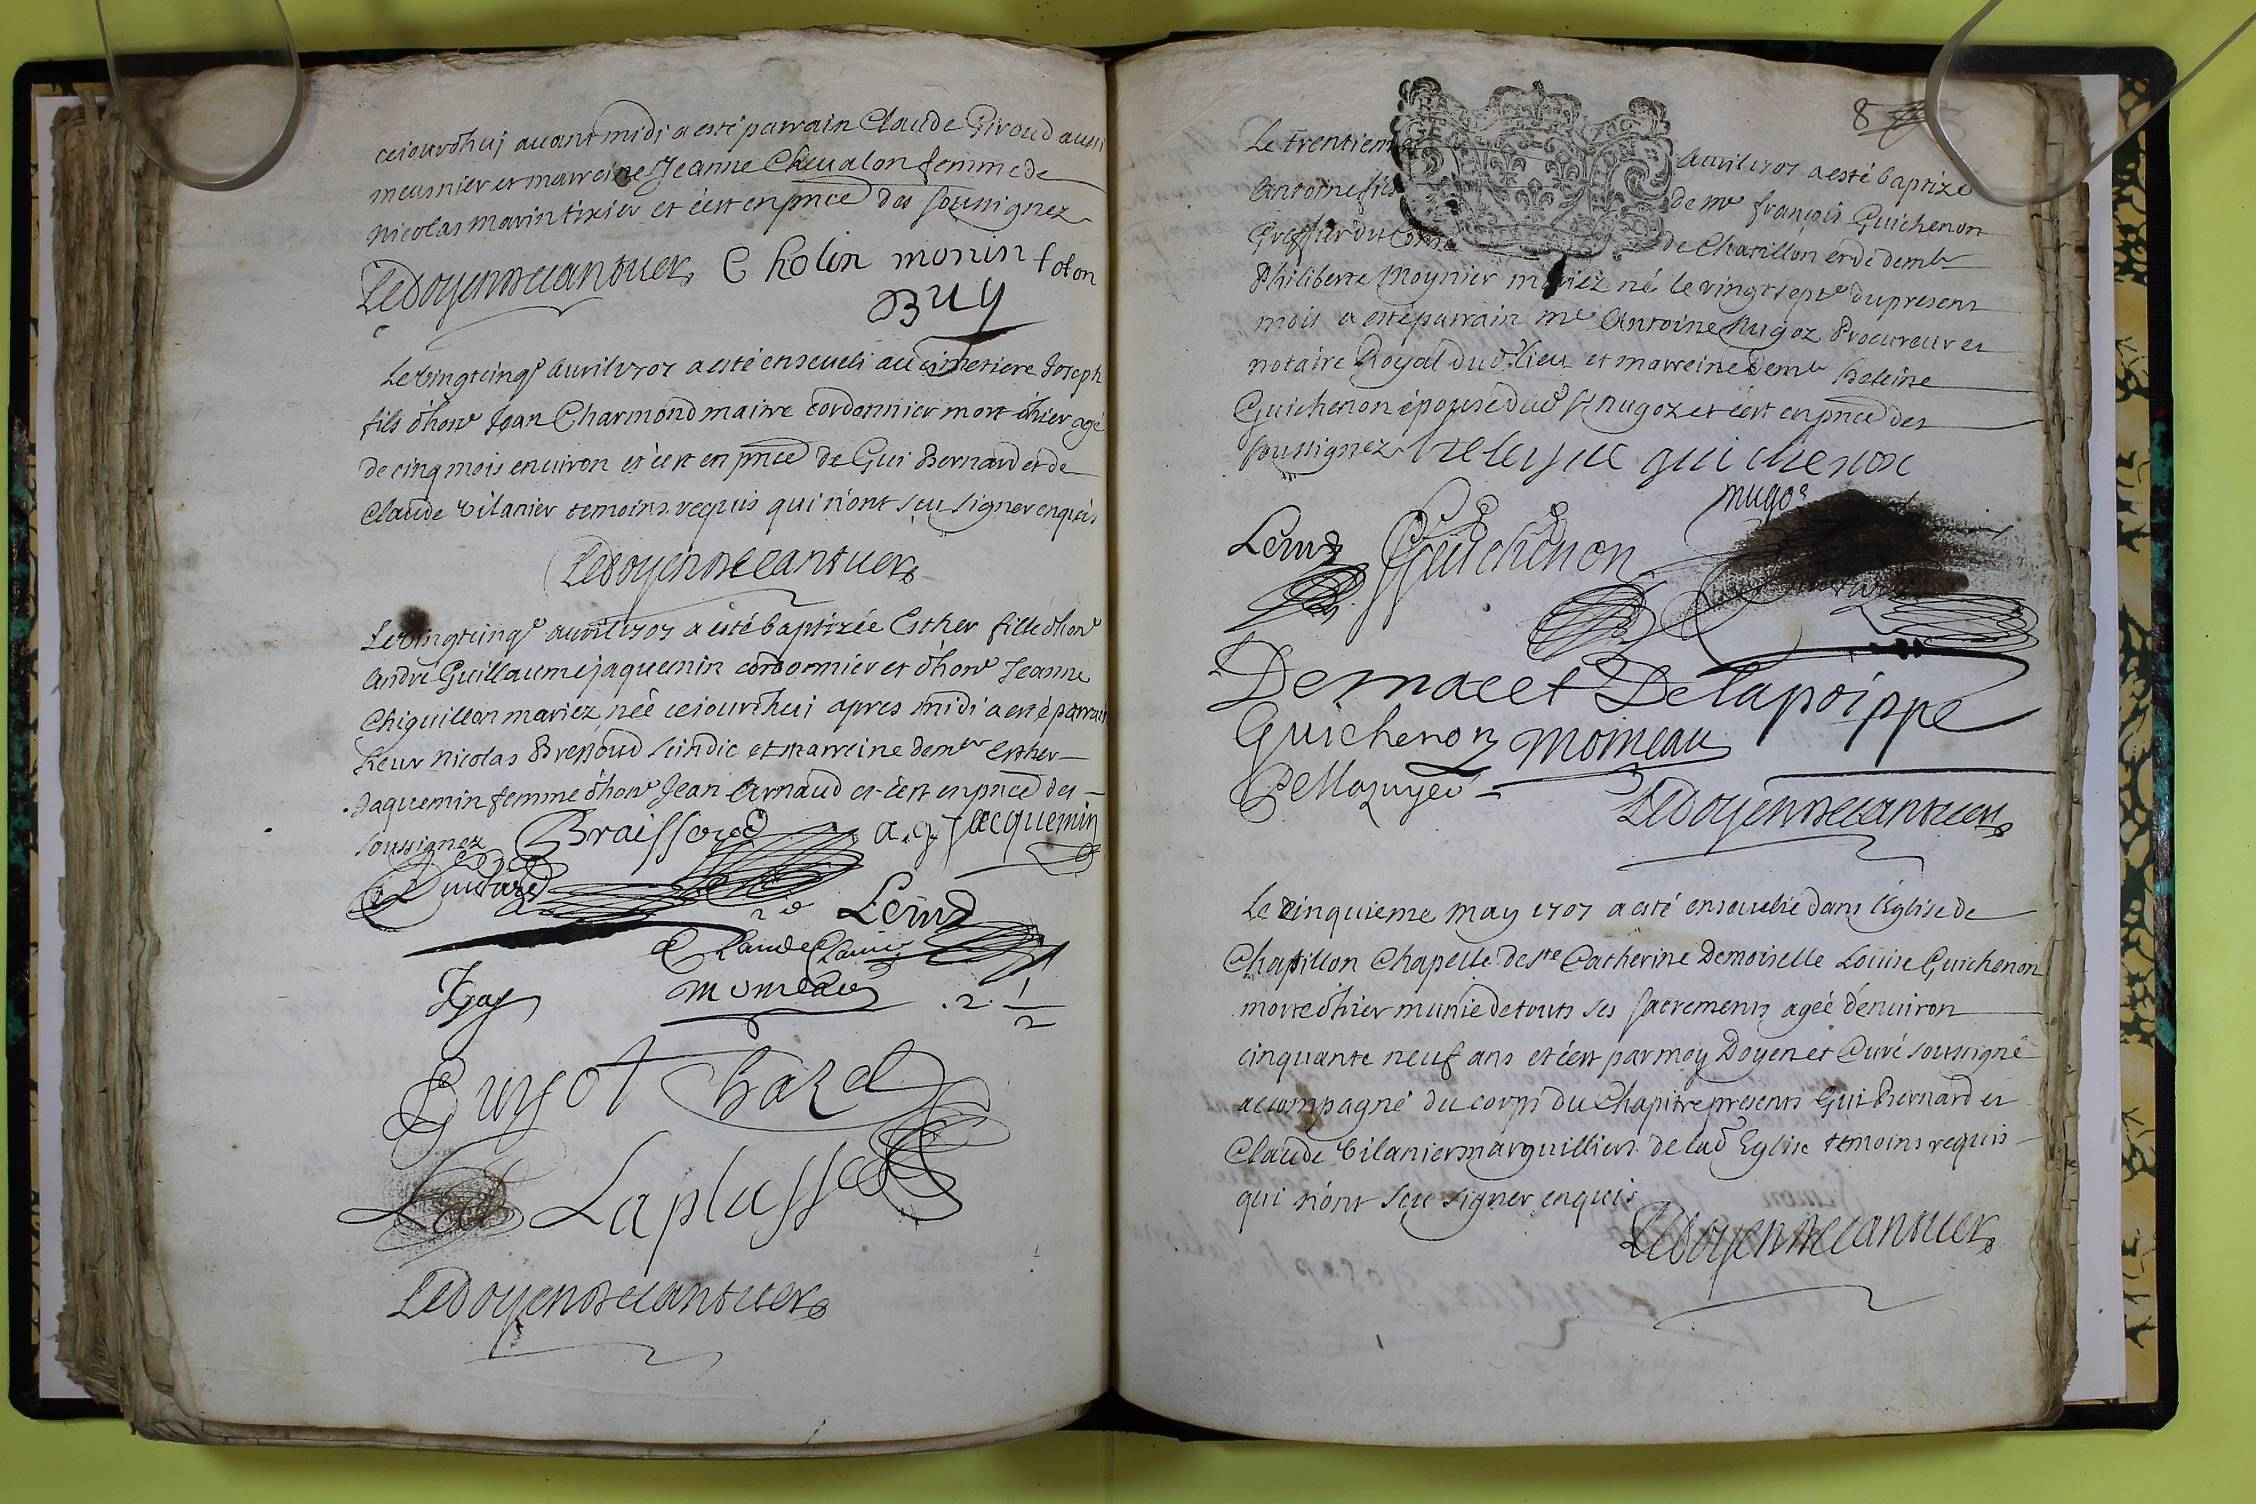 ceiourdhuj auant midi a esté parrain Claude Giroud aussi
meusnier et marreine Jeanne Cheualon femme de
Nicolas Morin tixier et c'est en pnce des soussignez
Ledoyen Decantuers Cholin monin foton
Buy
Le vingtcinqe Auril 1707 a esté enseueli au cimetiere Joseph
fils d'hone Jean Charmond maitre cordonnier mort d'hier agé
de cinq mois enuiron et c'est en pnce de Gui Bernard et de
Claude Vilanier temoins requis qui n'ont sçu signer enquis
Ledoyen Decantuers
Le vingtcinqe auril 1707 a esté baptizée Esther fille d'hone
André Guillaume jaquemin cordonnier et d'hone Jeanne
Chiquillon mariez née ceiourdhui apres midi a esté parrain
sieur Nicolas Bressoud scindic et marreine demlle Esther
Jaquemin femme d'hone Jean Arnaud et c'est en pnce des
soussignez Braissoud a. g. Jacquemin
Claude
momeau . 2 . 1/2
Guyot Chazel
Laplasse
Ledoyen Decantuers
8
Le trentieme Auril 1707 a esté baptizé
Antoine fils de me françois Guichenon
Greffier du de Chatillon et de demlle
Philiberte Moynier mariez né le vingtsepte du present
mois a esté parrain me Antoine Nugoz Procureur et
notaire Royal dud. lieu et marreine demlle heleine
Guichenon épouse dud sr nugoz et c'est en pnce des
soussignez heleyne guichenon
nugos
Guichenon
Demaeet Delapoippe
Guichenon Moineau
Ledoyen Decantuers
Le cinquieme May 1707 a esté enseuelie dans l'Eglise de
Chatillon Chapelle de ste Catherine Demoiselle Louise Guichenon
morte d'hier munie de touts ses sacrements agée d'enuiron
cinquante neuf ans et c'est par moy Doyen et Curé soussigné
accompagné du corps du Chapitre presents Gui Bernard et
Claude Vilanier marguilliers de lad Eglise temoins requis
qui n'ont sçu signer enquis
Ledoyen Decantuers